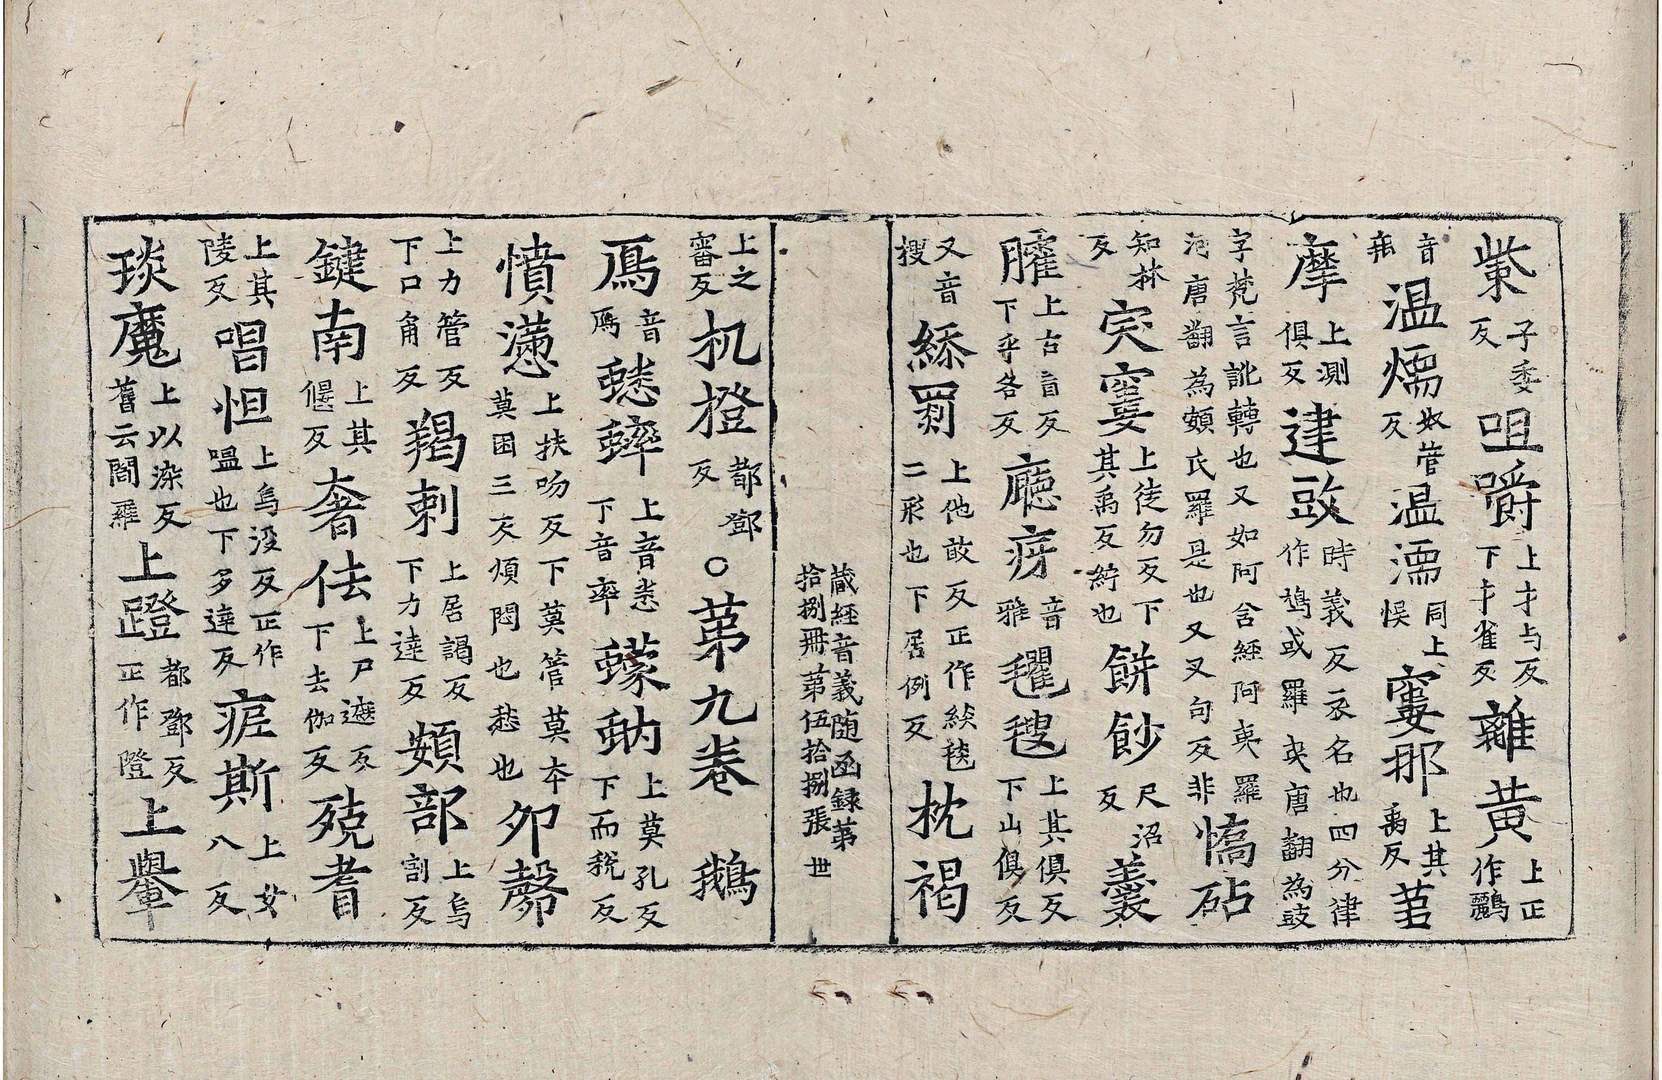 紫子委反咀嚼上才与反下才雀反離黄上正作鸝
音𤵜温煗奴管反温濡同上悮寠那上其禹反茥
摩上測俱反建㪉時義反氶名也四分律作鳩或羅夷唐翻為㪉
字梵言訛轉也又如阿含經阿夷羅河唐翻為頞氏羅是也又叉句反非憍砧
知林反突寠上徒勿反下其禹反紵也餅䬰尺沼反羹
臛上古盲反下乎各反廳疨音雅氍毹上其俱反下山俱反
又音搜緂罽上他敢反正作緂毯二形也下居例反枕褐
蔵經音義随函録第拾捌冊第伍拾捌張 世
上之審反机橙都鄧反○第九卷 鵝
鳫音鴈蟋蟀上音悉下音率蠓蚋上莫孔反下而税反
憤懣上扶吻反下莫管莫本莫困三反煩悶也愁也夘罄
上力管反下口角反羯剌上居謁反下力達反頞部上烏割反
鍵南上其偃反奢佉上尸遮反下去伽反殑耆
上其陵反唱怛上烏没反正作嗢也下多達反㾕斯上女八反
琰魔上以染反舊云閻羅上蹬都鄧反正作隥上轝